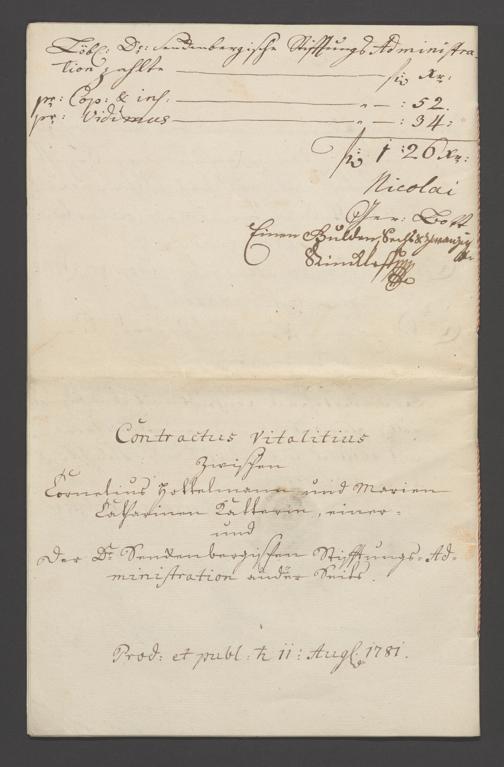 Löbl: Dr: Senckenbergische Stiftungs Administra-
tion zahlte — fl: Xr:
pr: Cop: & ins. — „ — : 52.
pr: Vidimus — „ — : 34:
fl: 1 : 26 Xr:
Nicolai
Ger: Bott
Einen Gulden Sechs & zwanzig
Contractus Vitalitius
Zwischen
Cornelius Hottelmann und Marien
Catharinen Katterin, einer-
und
Der Dr Senckenbergischen Stifftungs-Ad-
ministration ander Seits.
Prod: et publ: h 11: Aug. 1781.